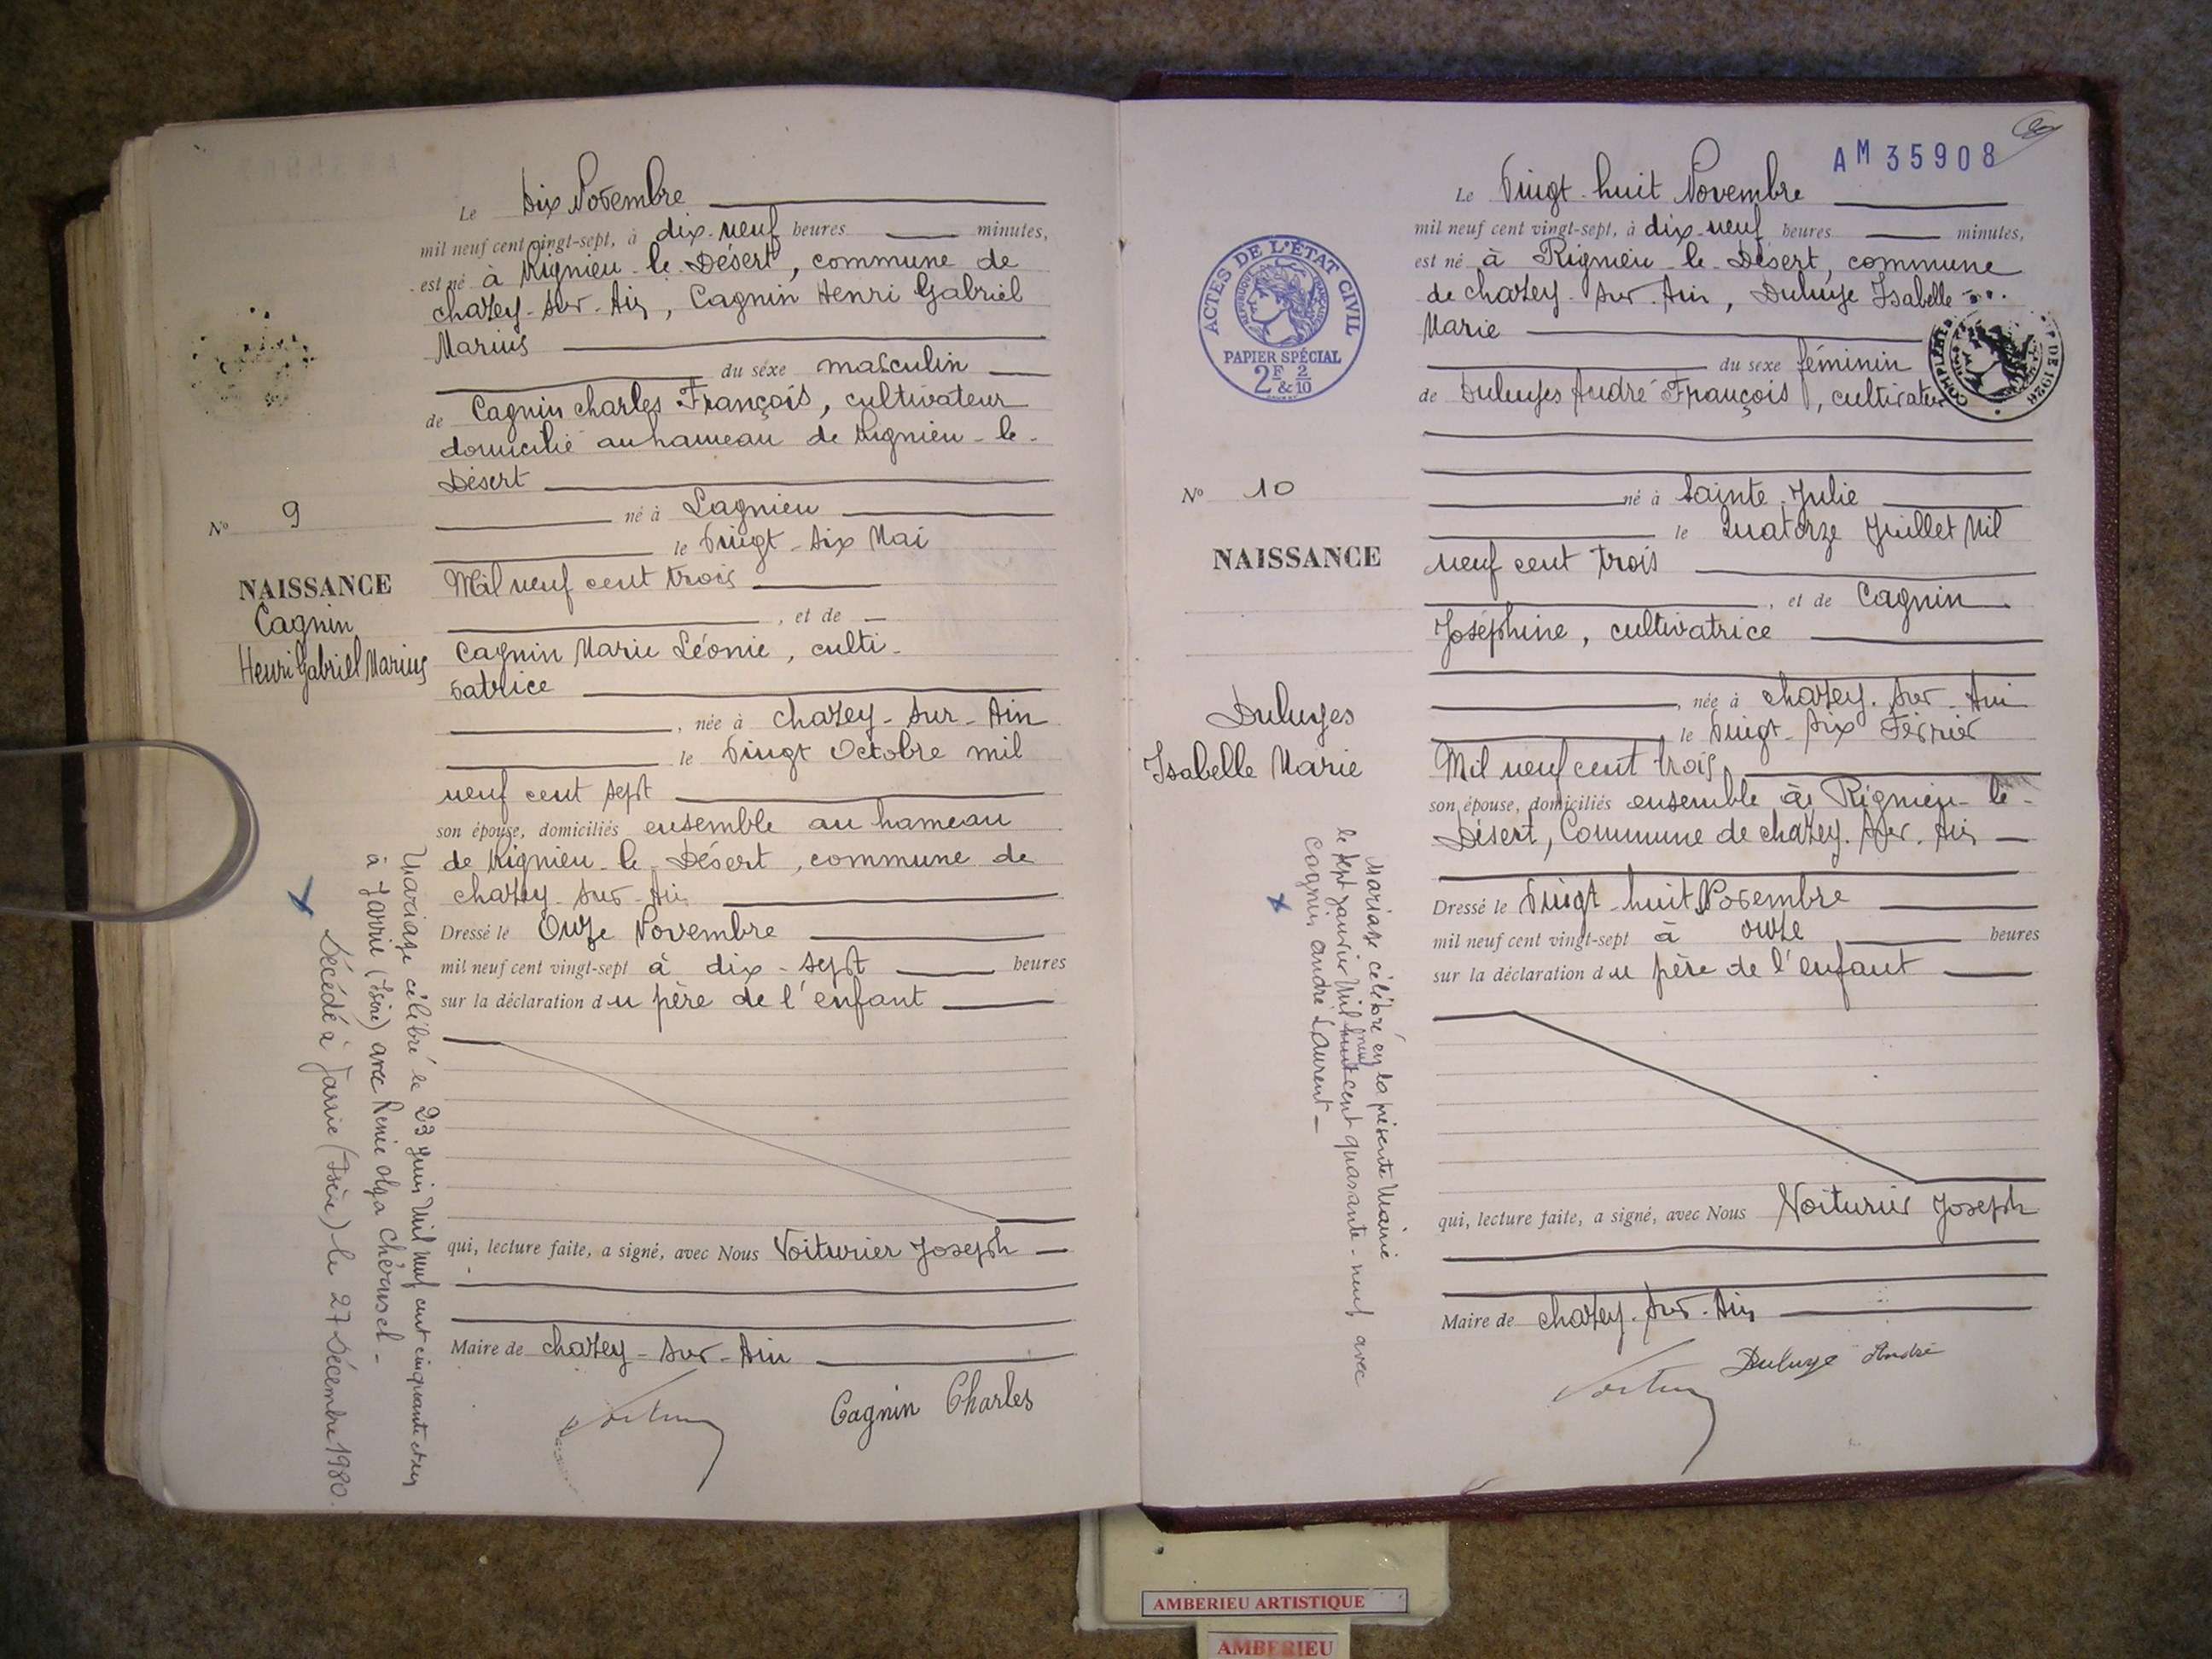 Le Dix Novembre
mil neuf cent vingt-sept, à dix-neuf heures minutes,
est né à Rignieu-le-Désert, commune de
chazey-sur-Ain, Cagnin Henri Gabriel
Marius
du sexe masculin
de Cagnin charles François, cultivateur
domicilié au hameau de Rignieu-le-
Désert
né à Lagnieu
le Vingt-six Mai
Mil neuf cent trois
, et de
Cagnin Marie Léonie, culti-
vatrice
, née à chazey-sur-Ain
le Vingt Octobre mil
neuf cent sept
son épouse, domiciliés ensemble au hameau
de Rignieu-le-Désert, commune de
chazey-sur-Ain
Dressé le Onze Novembre
mil neuf cent vingt-sept à dix-sept heures
sur la déclaration du père de l'enfant
qui, lecture faite, a signé, avec Nous Voiturier Joseph
Maire de chazey-sur-Ain
Cagnin Charles
N° 9
NAISSANCE
Cagnin
Henri Gabriel Marius
Mariage célébré le 23 Juin Mil neuf cent cinquante et un
à Jarrie (Isère) avec Renée Olga
Décédé à Jarrie (Isère) le 27 Décembre 1980.
AM 35908
Le Vingt-huit Novembre
mil neuf cent vingt-sept, à dix-neuf heures minutes,
est né à Rignieu-le-Désert, commune
de chazey-sur-Ain, Duluye Isabelle
Marie
du sexe féminin
de Duluyes André François, cultivateur
né à Sainte-Julie
le Quatorze Juillet Mil
neuf cent trois
, et de Cagnin
Joséphine, cultivatrice
, née à chazey-sur-Ain
le Vingt-six Février
Mil neuf cent trois
son épouse, domiciliés ensemble à Rignieu-le-
Désert, Commune de chazey-sur-Ain
Dressé le Vingt-huit Novembre
mil neuf cent vingt-sept à onze heures
sur la déclaration du père de l'enfant
qui, lecture faite, a signé, avec Nous Voiturier Joseph
Maire de chazey-sur-Ain
Duluye André
ACTES DE L'ÉTAT CIVIL
RÉPUBLIQUE FRANÇAISE
PAPIER SPÉCIAL
2F & 2/10
N° 10
NAISSANCE
Duluyes
Isabelle Marie
Mariage célébré en la présente Mairie
le sept janvier Mil huit neuf cent quarante-neuf avec
Cagnin André Laurent
AMBERIEU ARTISTIQUE
AMBERIEU